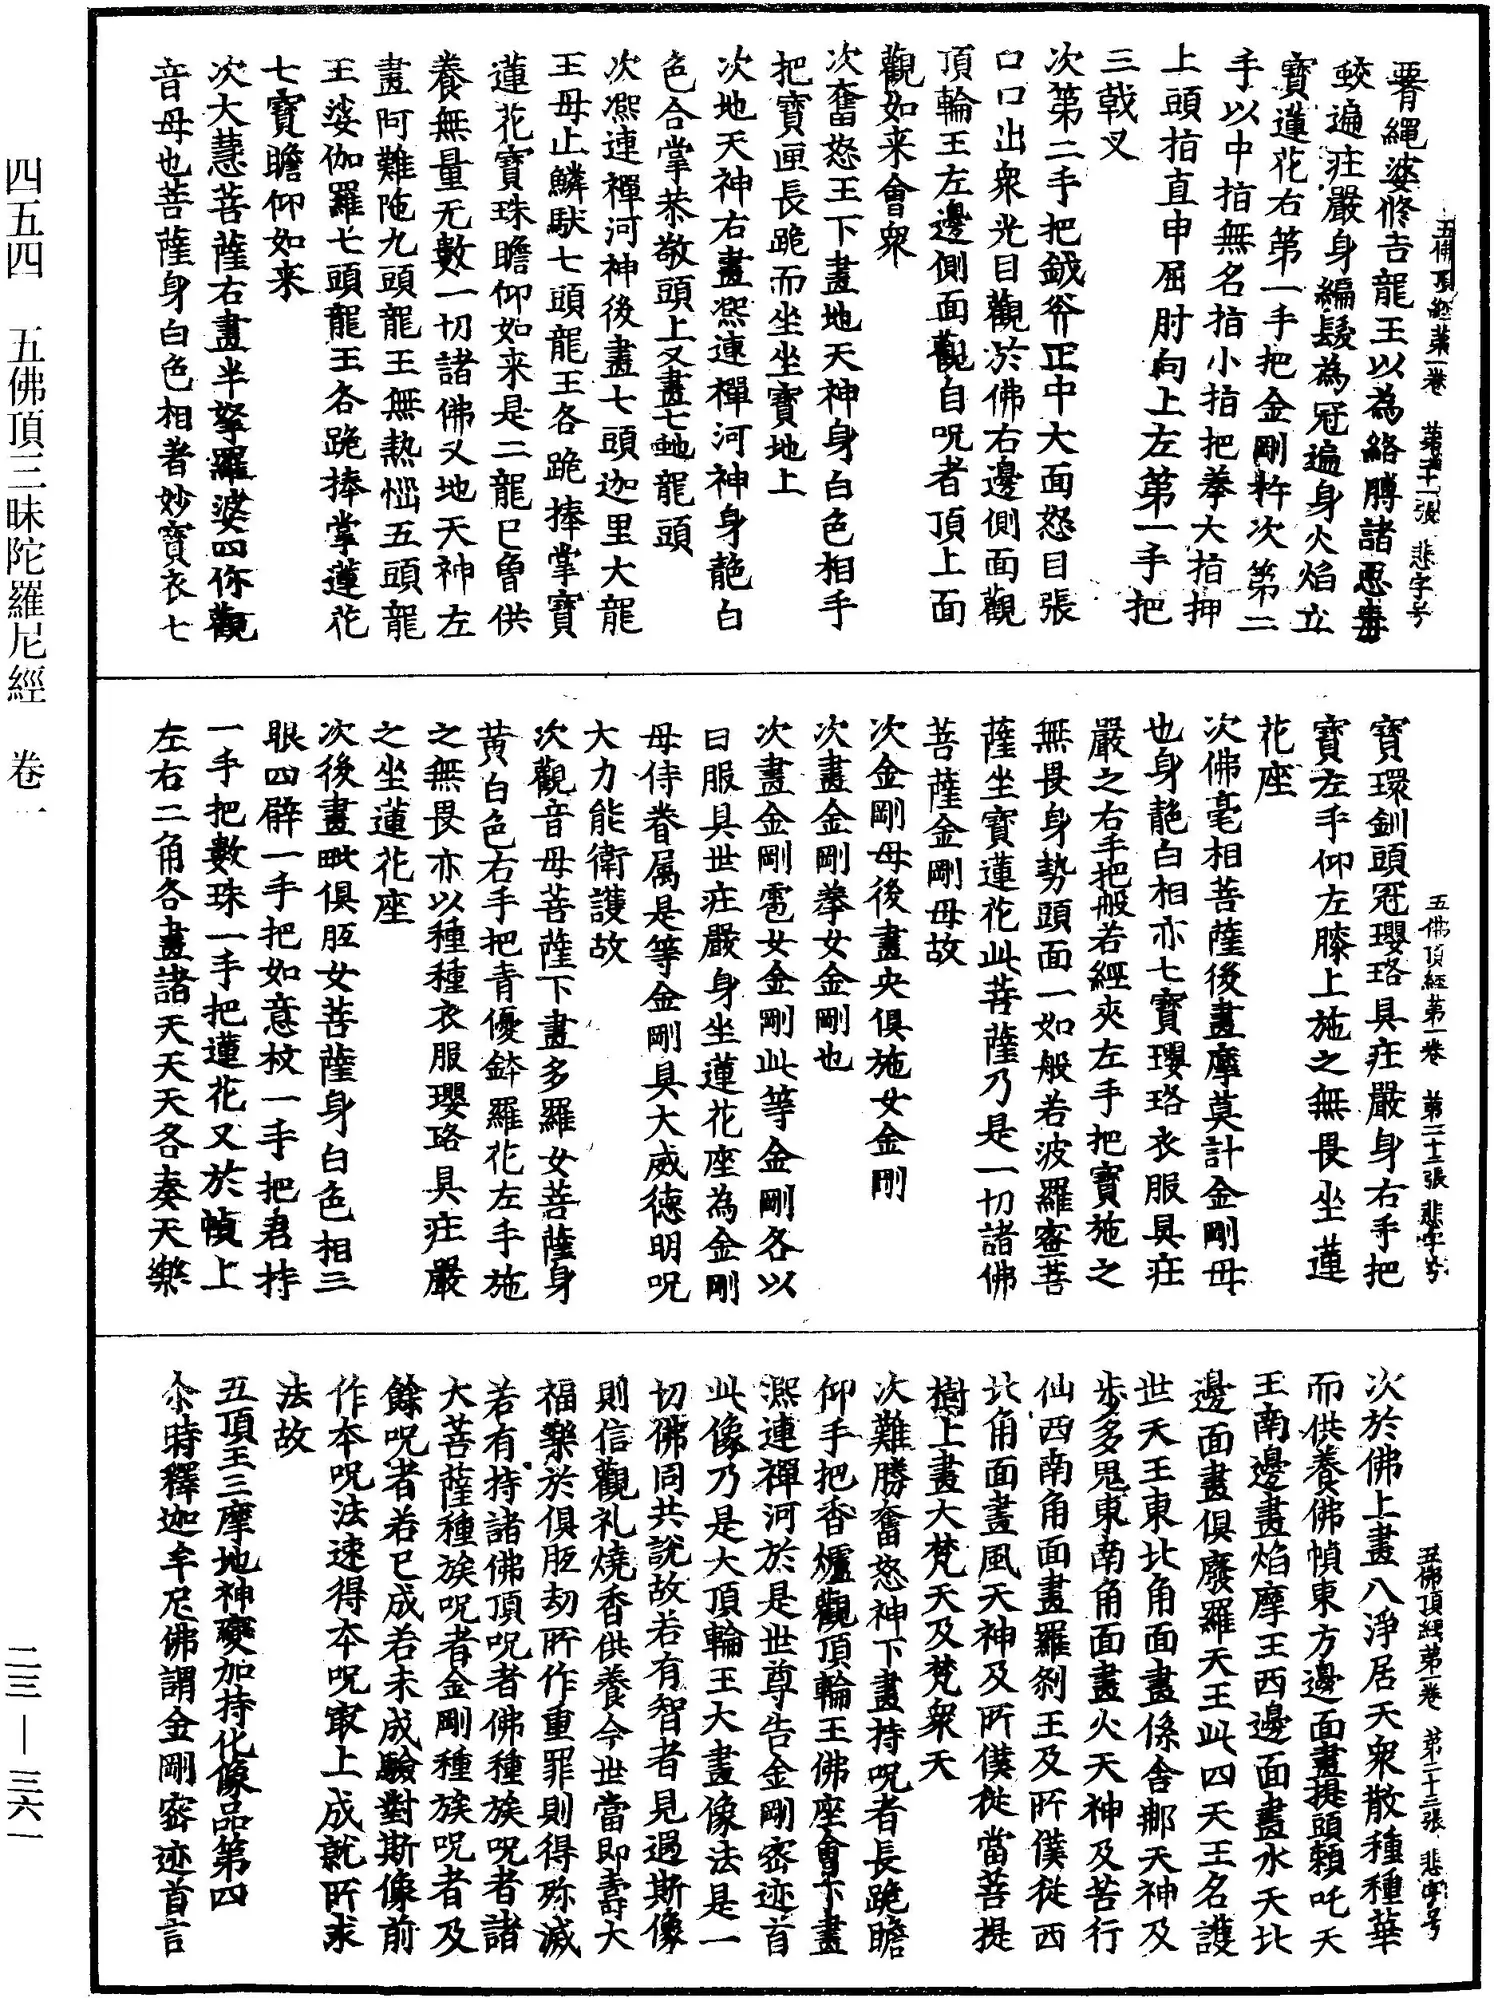 四五四　五佛頂三昧陀羅尼經　卷一
二三—三六一
五佛頂經第一卷　第二十一張　悲字号
要脊繩婆修吉龍王以為絡膊諸惡毒
蛟遍莊嚴身編髮為冠遍身火焰立
寶蓮花右第一手把金剛杵次第二
手以中指無名指小指把拳大指押
上頭指直申屈肘向上左第一手把
三戟叉
次第二手把鉞斧正中大面怒目張
口口出衆光目觀於佛右邊側面觀
頂輪王左邊側面觀自呪者頂上面
觀如来會衆
次奮怒王下畫地天神身白色相手
把寶匣長跪而坐坐寶地上
次地天神右畫凞連禪河神身艶白
色合掌恭敬頭上又畫七虵龍頭
次凞連禪河神後畫七頭迦里大龍
王母止鱗馱七頭龍王各跪捧掌寶
蓮花寶珠瞻仰如来是二龍已曾供
養無量无數一切諸佛又地天神左
畫阿難陁九頭龍王無熱惱五頭龍
王婆伽羅七頭龍王各跪捧掌蓮花
七寶瞻仰如来
次大慧菩薩右畫半拏羅婆四你觀
音母也菩薩身白色相著妙寶衣七
五佛頂經第一卷　第二十二張　悲字号
寶環釧頭冠瓔珞具莊嚴身右手把
寶左手仰左膝上施之無畏坐蓮
花座
次佛毫相菩薩後畫摩莫計金剛母
也身艶白相亦七寶瓔珞衣服具莊
嚴之右手把般若經夾左手把寶施之
無畏身勢頭面一如般若波羅蜜菩
薩坐寶蓮花此菩薩乃是一切諸佛
菩薩金剛母故
次金剛母後畫央俱施女金剛
次畫金剛拳女金剛也
次畫金剛雹女金剛此等金剛各以
日服具世莊嚴身坐蓮花座為金剛
母侍眷属是等金剛具大威德明呪
大力能衛護故
次觀音母菩薩下畫多羅女菩薩身
黄白色右手把青優鉢羅花左手施
之無畏亦以種種衣服瓔珞具莊嚴
之坐蓮花座
次後畫毗俱胝女菩薩身白色相三
眼四臂一手把如意杖一手把君持
一手把數珠一手把蓮花又於幀上
左右二角各畫諸天天天各奏天樂
五佛頂經第一卷　第二十三張　悲字号
次於佛上畫八淨居天衆散種種華
而供養佛幀東方邊面畫提頭賴吒天
王南邊畫焰摩王西邊面畫水天北
邊面畫俱廢羅天王此四天王名護
世天王東北角面畫係舎那天神及
步多鬼東南角面畫火天神及苦行
仙西南角面畫羅刹王及所僕從西
北角面畫風天神及所僕從當菩提
樹上畫大梵天及梵衆天
次難勝奮怒神下畫持呪者長跪瞻
仰手把香爐觀頂輪王佛座會下畫
凞連禪河於是世尊告金剛密迹首
此像乃是大頂輪王大畫像法是一
切佛同共說故若有智者見遇斯像
則信觀礼燒香供養今世當即壽大
福樂於俱胝劫所作重罪則得殄滅
若有持諸佛頂呪者佛種族呪者諸
大菩薩種族呪者金剛種族呪者及
餘呪者若已成若未成驗對斯像前
作本呪法速得本呪最上成就所求
法故
五頂王三摩地神變加持化像品第四
尒時釋迦牟尼佛謂金剛密迹首言